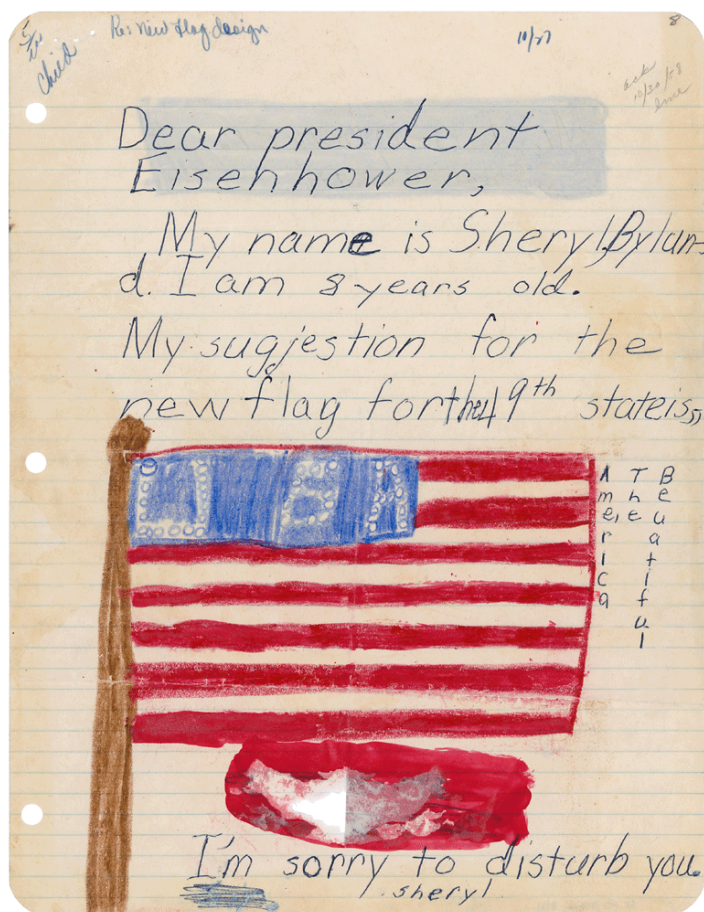 Child
Re: New flag design
10/27
8
ack
10/30/58
Dear president
Eisenhower,
My name is Sheryl Bylan-
d. I am 8 years old.
My sugjestion for the
new flag for the 49th state is,,
America
The
Beuatiful
I'm sorry to disturb you.
sheryl